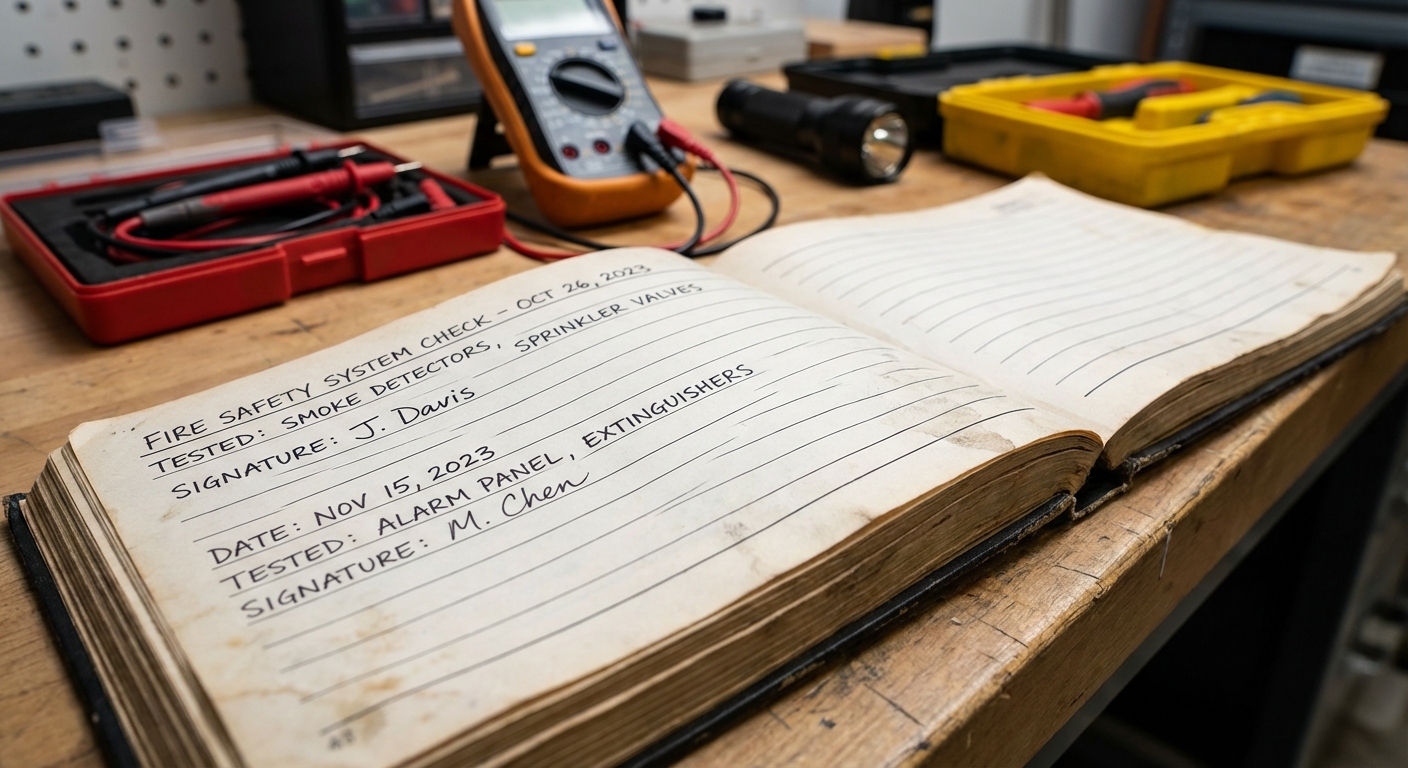 FIRE SAFETY SYSTEM CHECK - OCT 26, 2023
TESTED: SMOKE DETECTORS, SPRINKLER VALVES
SIGNATURE: J. Davis
DATE: NOV 15, 2023
TESTED: ALARM PANEL, EXTINGUISHERS
SIGNATURE: M. Chen